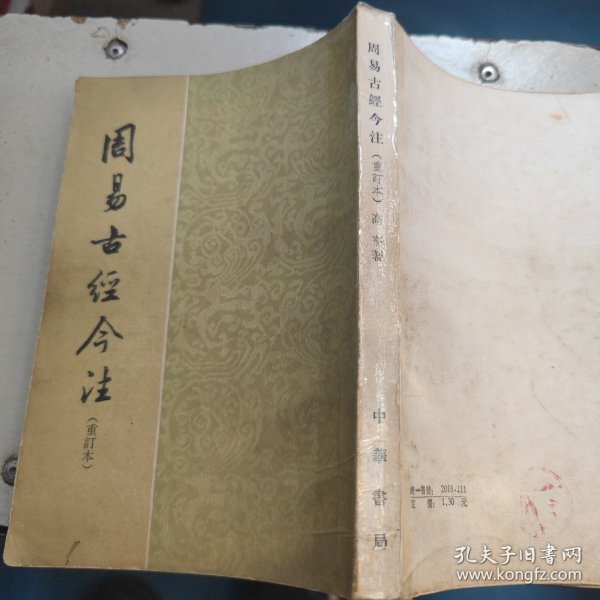 周易古經今注
(重訂本)
周易古經今注(重訂本)高亨著
中華書局
統一書號: 2018·211
定 價: 1.30 元
孔夫子旧书网
www.kongfz.com